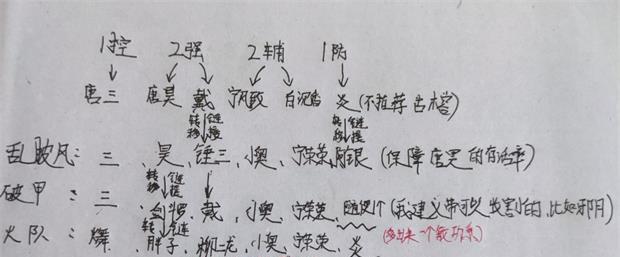 1控 2强 2辅 1防
唐三 唐昊 戴 宁风致 白沉香 炎(不推荐古榕)
转移 链接 转移 链接
乱披风: 三、昊、锤三、小奥、宁荣荣、阿银(保障唐昊的存活率)
转移 链接
破甲: 三、剑斗罗、戴、小奥、宁荣荣、随便1个(我建议带可以伤害的,比如邪月)
转 链
火队: 舞、胖子、柳二龙、小奥、宁荣荣、炎